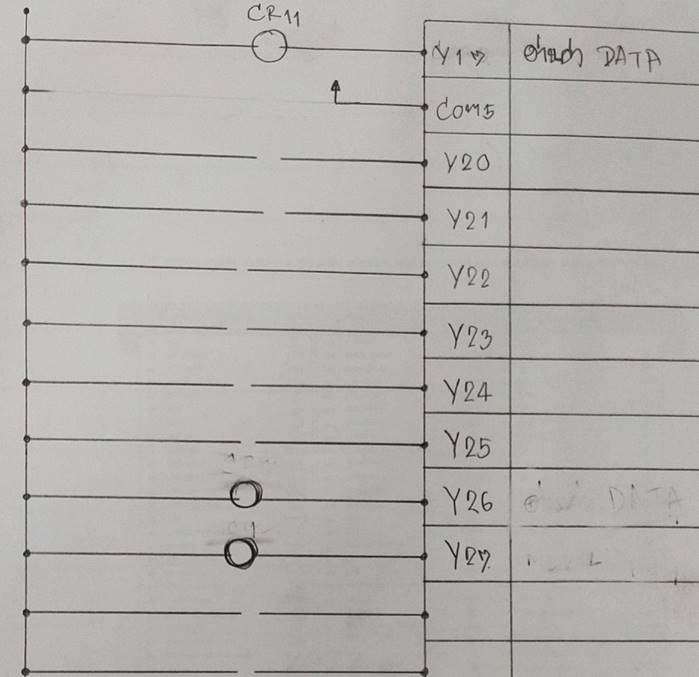 CR11
Y17 DATA
Com5
Y20
Y21
Y22
Y23
Y24
Y25
Y26 DATA
Y27